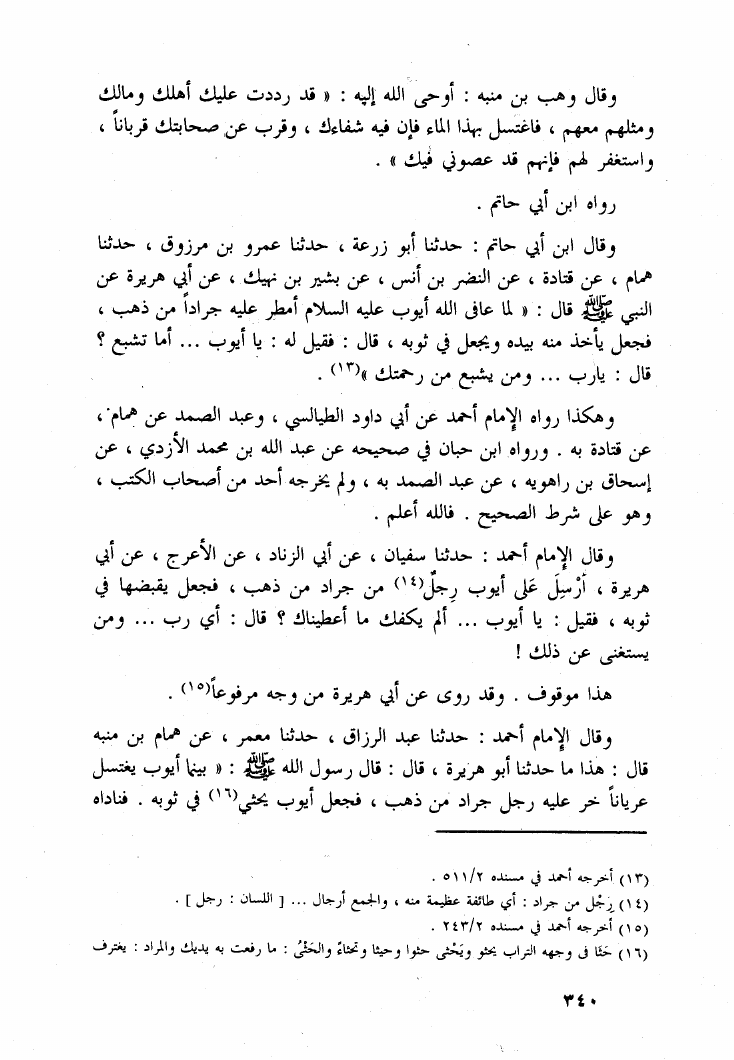 وقال وهب بن منبه : أوحى الله إليه : « قد رددت عليك أهلك ومالك
ومثلهم معهم ، فاغتسل بهذا الماء فإن فيه شفاءك ، وقرب عن صحابتك قرباناً ،
واستغفر لهم فإنهم قد عصوني فيك » .
رواه ابن أبي حاتم .
وقال ابن أبي حاتم : حدثنا أبو زرعة ، حدثنا عمرو بن مرزوق ، حدثنا
همام ، عن قتادة ، عن النضر بن أنس ، عن بشير بن نهيك ، عن أبي هريرة عن
النبي ﷺ قال : « لما عافى الله أيوب عليه السلام أمطر عليه جراداً من ذهب ،
فجعل يأخذ منه بيده ويجعل في ثوبه ، قال : فقيل له : يا أيوب ... أما تشبع ؟
قال : يارب ... ومن يشبع من رحمتك »(١٣) .
وهكذا رواه الإمام أحمد عن أبي داود الطيالسي ، وعبد الصمد عن همام ،
عن قتادة به . ورواه ابن حبان في صحيحه عن عبد الله بن محمد الأزدي ، عن
إسحاق بن راهويه ، عن عبد الصمد به ، ولم يخرجه أحد من أصحاب الكتب ،
وهو على شرط الصحيح . فالله أعلم .
وقال الإمام أحمد : حدثنا سفيان ، عن أبي الزناد ، عن الأعرج ، عن أبي
هريرة ، أُرْسِلَ عَلى أيوب رِجلٌ(١٤) من جراد من ذهب ، فجعل يقبضها في
ثوبه ، فقيل : يا أيوب ... ألم يكفك ما أعطيناك ؟ قال : أي رب ... ومن
يستغنى عن ذلك !
هذا موقوف . وقد روى عن أبي هريرة من وجه مرفوعاً(١٥) .
وقال الإمام أحمد : حدثنا عبد الرزاق ، حدثنا معمر ، عن همام بن منبه
قال : هذا ما حدثنا أبو هريرة ، قال : قال رسول الله ﷺ : « بينما أيوب يغتسل
عرياناً خر عليه رجل جراد من ذهب ، فجعل أيوب يحثي(١٦) في ثوبه . فناداه
(١٣) أخرجه أحمد في مسنده ٥١١/٢ .
(١٤) رِجُل من جراد : أي طائفة عظيمة منه ، والجمع أرجال ... [ اللسان : رجل ] .
(١٥) أخرجه أحمد في مسنده ٢٤٣/٢ .
(١٦) حَثَا فى وجهه التراب يحثو ويَحْثى حثوا وحيثا وتحثاءً والحَثْىُ : ما رفعت به يديك والمراد : يغترف
٣٤٠